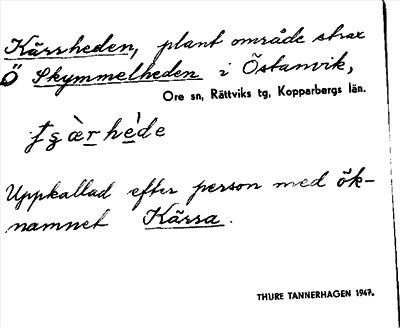 Kärrheden, plant område strax
Ö Skymmelheden i Östanvik,
Ore sn, Rättviks tg, Kopparbergs län.
Uppkallad efter person med ök-
namnet Kässa.
THURE TANNERHAGEN 1947.